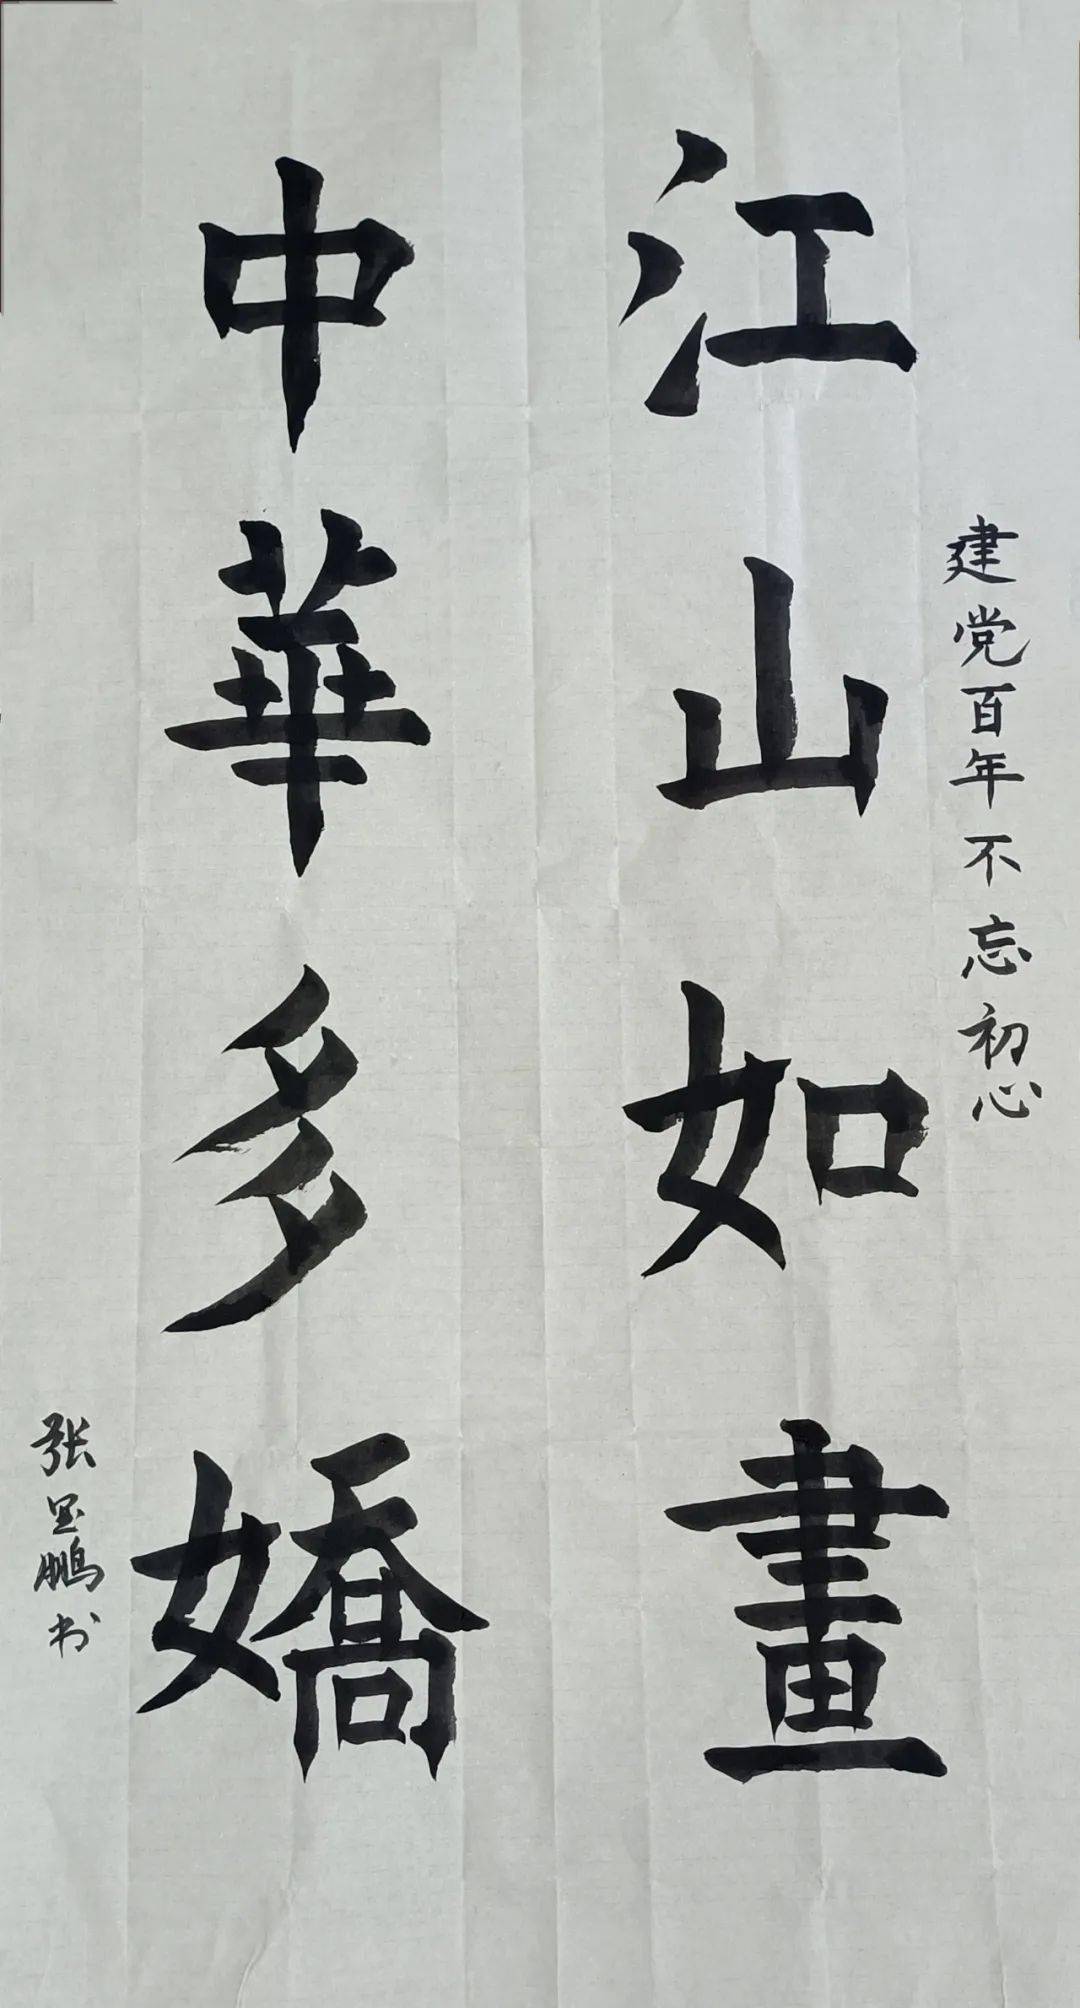 建党百年不忘初心
江山如畫
中華多嬌
张 鹏书